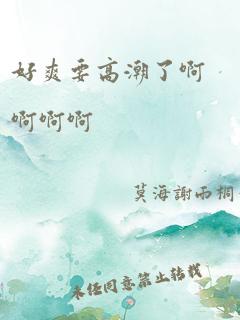 好爽要高潮了啊
啊啊啊
莫海謝雨桐
未经同意禁止转载